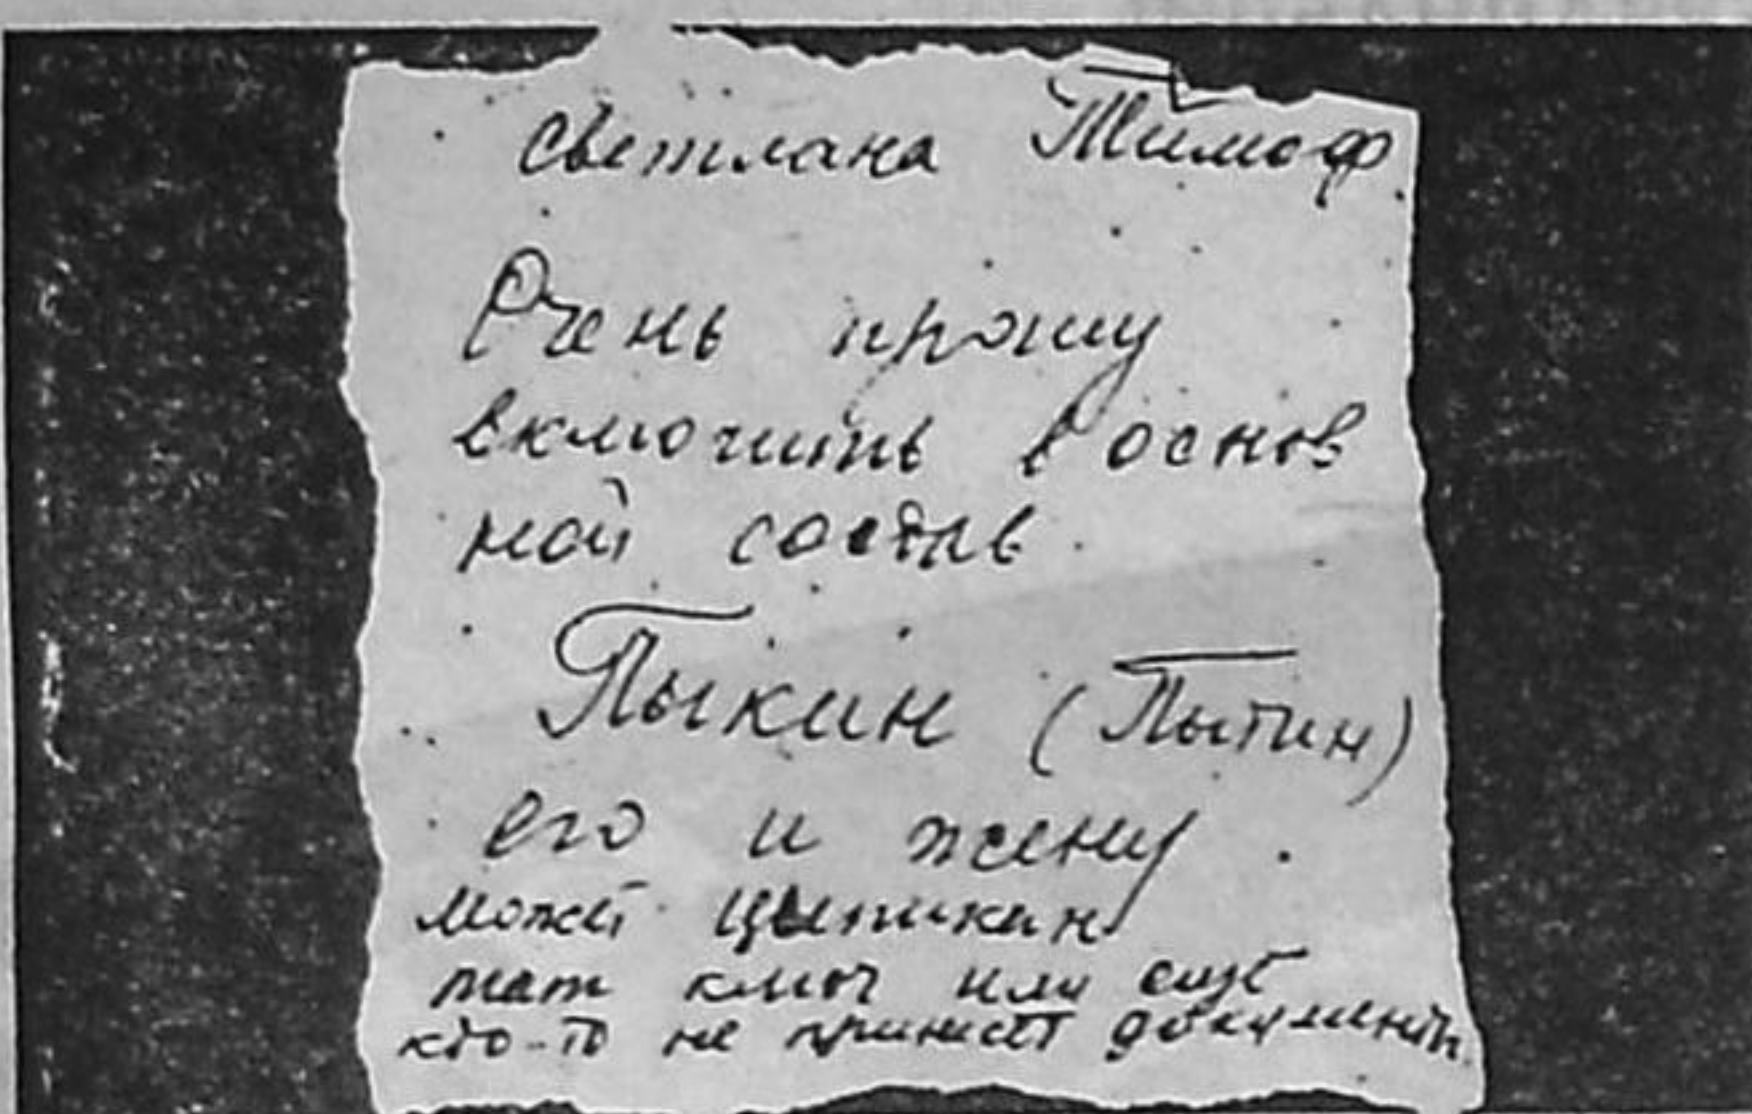 Светлана Тимоф.
Очень прошу
включить в основ
ной состав.
Пыкин (Пыпин)
его и жену.
может Цыпикин
там ключ или ещё
кто-то не принесёт документы.